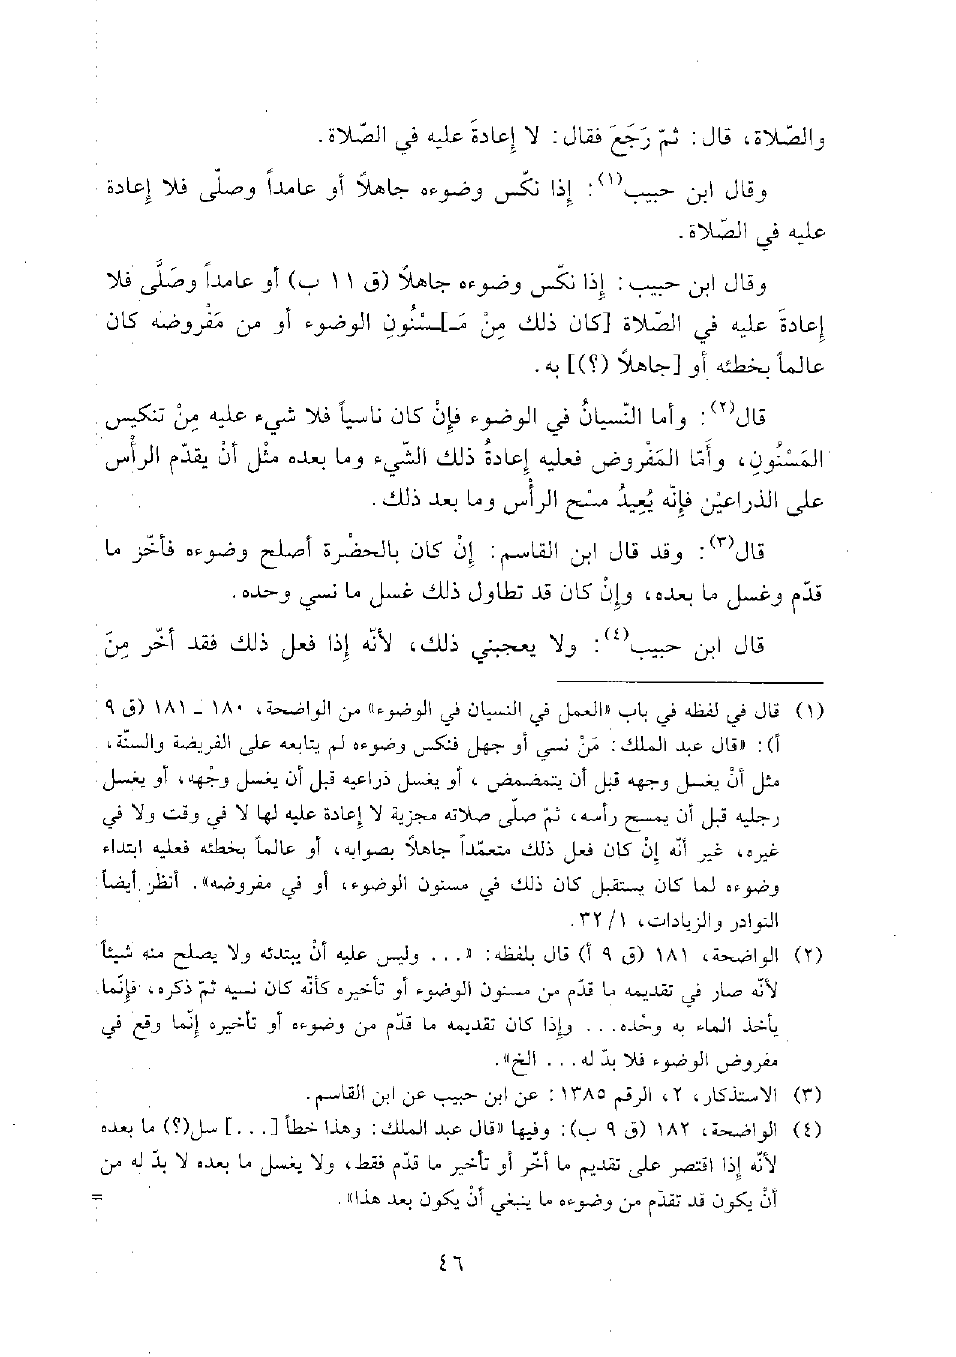 والصّلاة، قال: ثمّ رَجَعَ فقال: لا إعادةَ عليه في الصّلاة.
وقال ابن حبيب(١): إذا نكّس وضوءه جاهلاً أو عامداً وصلّى فلا إعادة
عليه في الصّلاة.
وقال ابن حبيب: إذا نكّس وضوءه جاهلاً (ق ١١ ب) أو عامداً وصَلَّى فلا
إعادةَ عليه في الصّلاة [كان ذلك مِنْ مَـ]ـسْنُونِ الوضوء أو من مَفْروضه كان
عالماً بخطئه أو [جاهلاً (؟)] به.
قال(٢): وأما النّسيانُ في الوضوء فإنْ كان ناسياً فلا شيء عليه مِنْ تنكيس
المَسْنُونِ، وأَمّا المَفْروض فعليه إعادةُ ذلك الشّيء وما بعده مثْل أنْ يقدّم الرأْس
على الذراعيْن فإنّه يُعِيدُ مسْح الرأْس وما بعد ذلك.
قال(٣): وقد قال ابن القاسم: إنْ كان بالحضْرة أصلح وضوءه فأخّر ما
قدّم وغسل ما بعده، وإنْ كان قد تطاول ذلك غسل ما نسي وحده.
قال ابن حبيب(٤): ولا يعجبني ذلك، لأنّه إذا فعل ذلك فقد أخّر مِنَ
(١) قال في لفظه في باب «العمل في النسيان في الوضوء» من الواضحة، ١٨٠ ـ ١٨١ (ق ٩
أ): «قال عبد الملك: مَنْ نسي أو جهل فنكس وضوءه لم يتابعه على الفريضة والسنّة،
مثل أنْ يغسل وجهه قبل أن يتمضمض، أو يغسل ذراعيه قبل أن يغسل وجْهه، أو يغسل
رجليه قبل أن يمسح رأسه، ثمّ صلّى صلاته مجزية لا إعادة عليه لها لا في وقت ولا في
غيره، غير أنّه إنْ كان فعل ذلك متعمّداً جاهلاً بصوابه، أو عالماً بخطئه فعليه ابتداء
وضوءه لما كان يستقبل كان ذلك في مسنون الوضوء، أو في مفروضه». أنظر أيضاً
النوادر والزيادات، ٣٢/١.
(٢) الواضحة، ١٨١ (ق ٩ أ) قال بلفظه: «... وليس عليه أنْ يبتدئه ولا يصلح منه شيئاً
لأنّه صار في تقديمه ما قدّم من مسنون الوضوء أو تأخيره كأنّه كان نسيه ثمّ ذكره، فإنّما
يأخذ الماء به وحْده... وإذا كان تقديمه ما قدّم من وضوءه أو تأخيره إنّما وقع في
مفروض الوضوء فلا بدّ له... الخ».
(٣) الاستذكار، ٢، الرقم ١٣٨٥: عن ابن حبيب عن ابن القاسم.
(٤) الواضحة، ١٨٢ (ق ٩ ب): وفيها «قال عبد الملك: وهذا خطأ [...] سل(؟) ما بعده
لأنّه إذا اقتصر على تقديم ما أخّر أو تأخير ما قدّم فقط، ولا يغسل ما بعده لا بدّ له من
أنْ يكون قد تقدّم من وضوءه ما ينبغي أنْ يكون بعد هذا».
=
٤٦